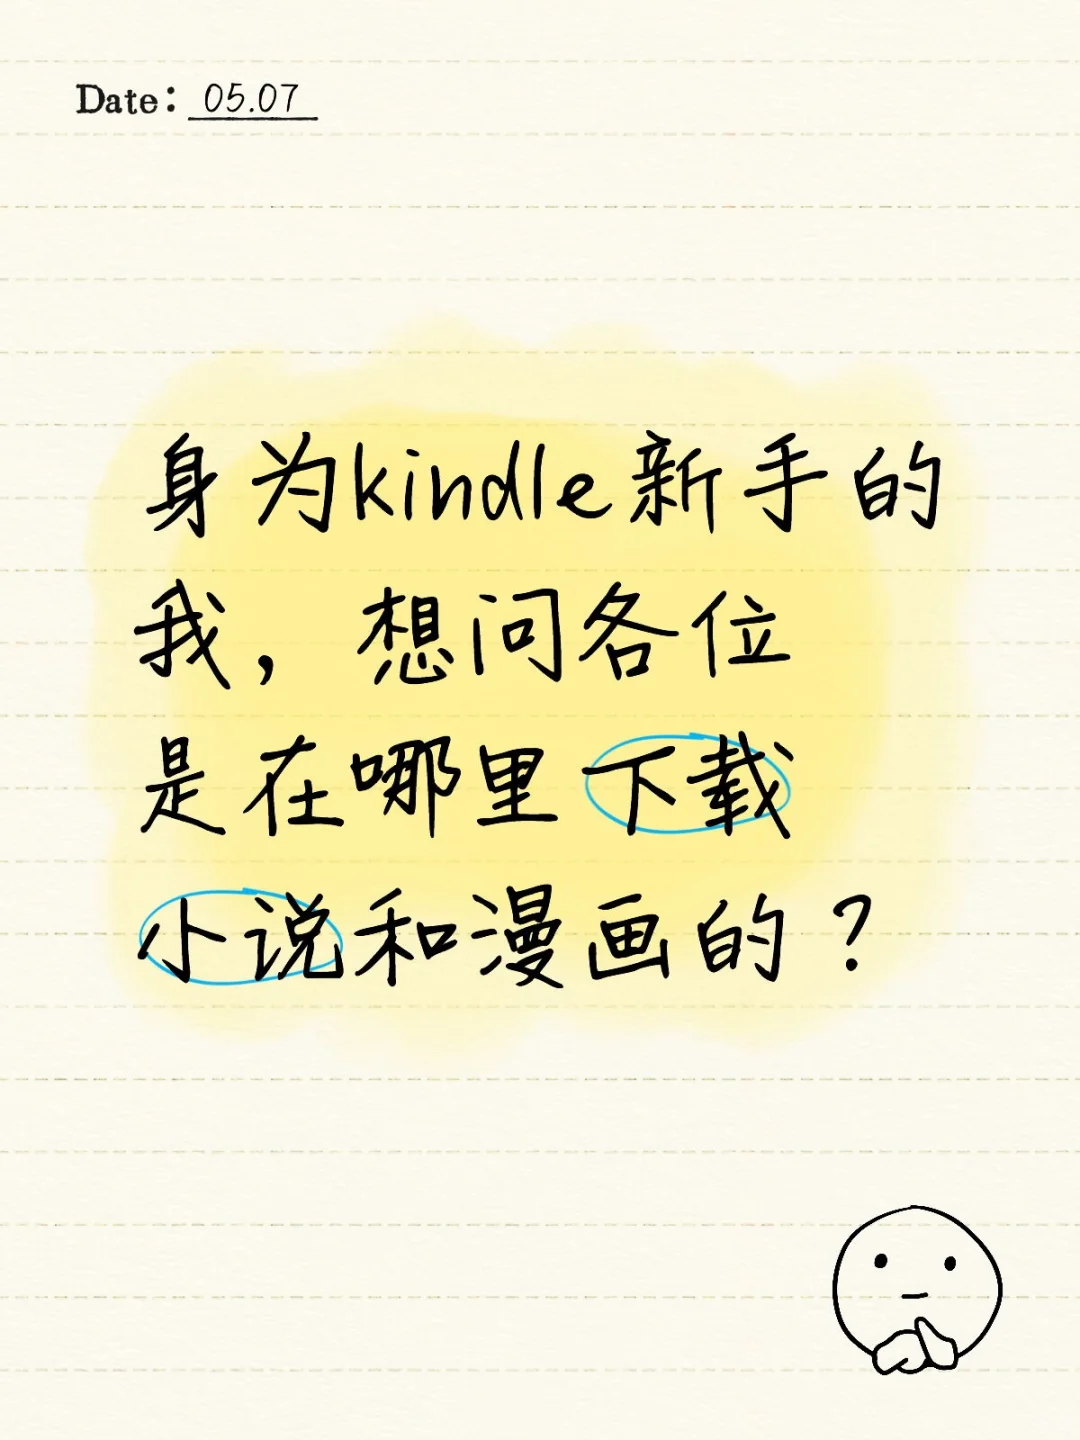 Date: 05.07
身为kindle新手的
我，想问各位
是在哪里下载
小说和漫画的？